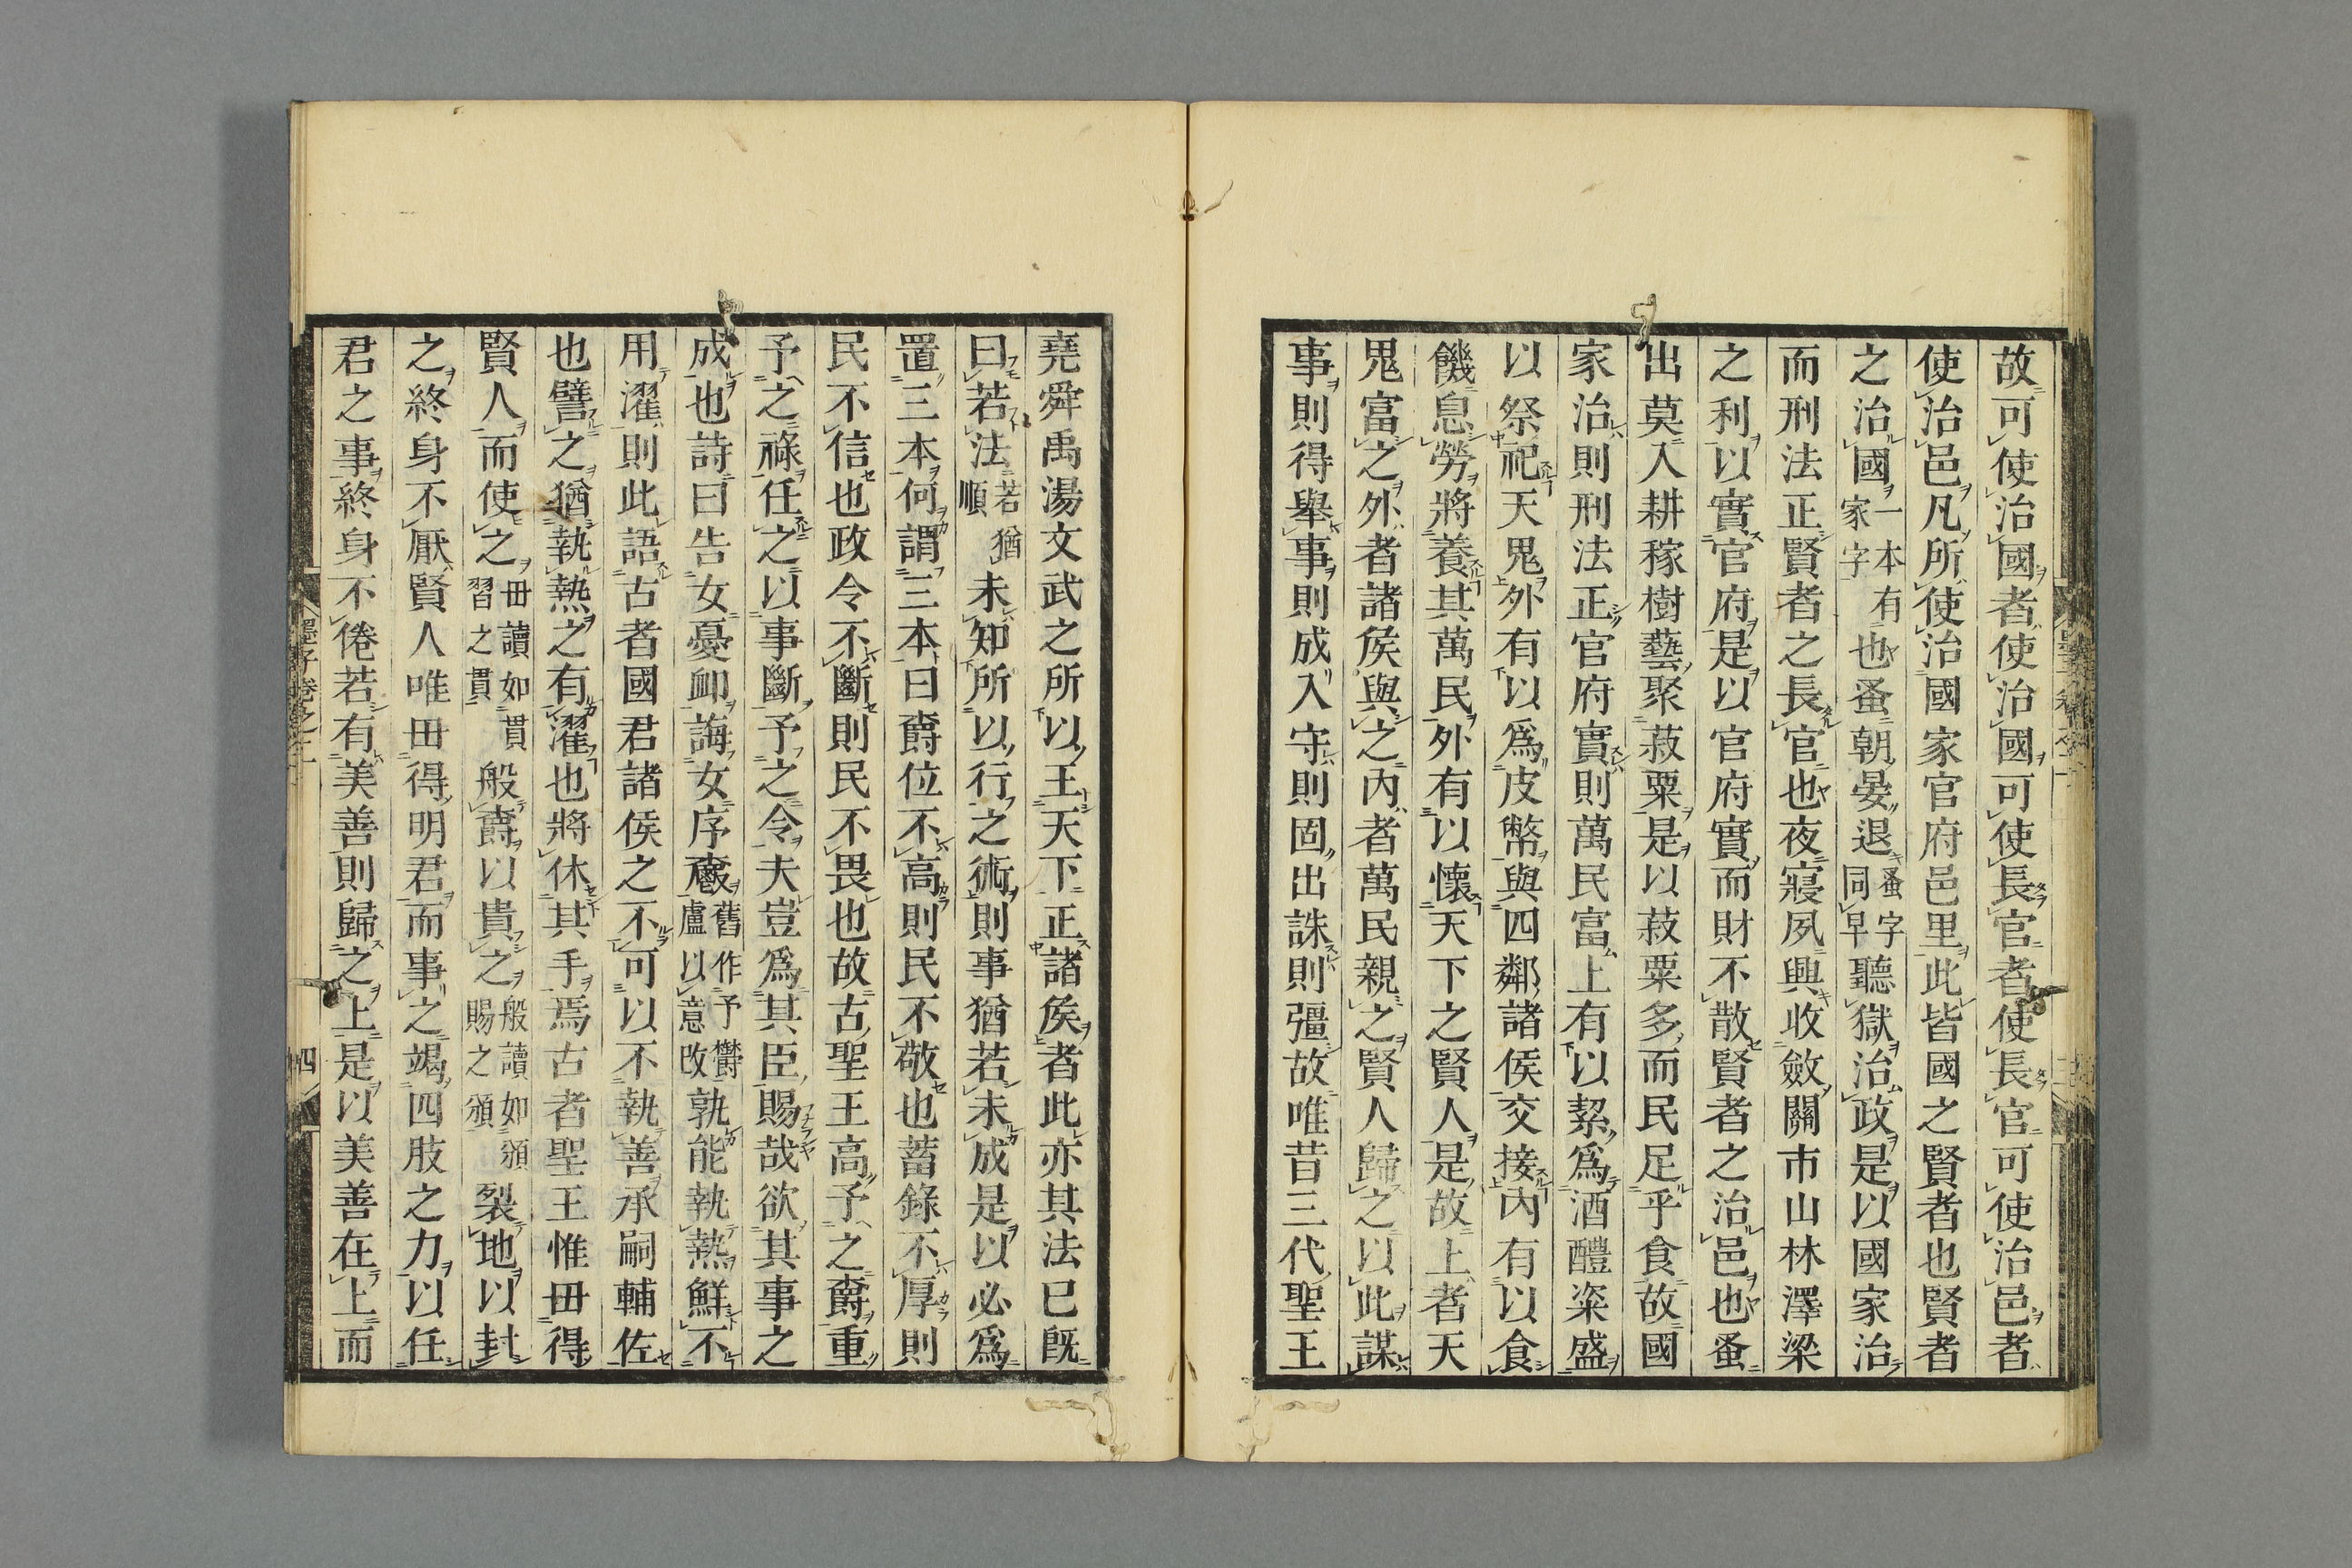 故可使治國者使治國可使長官者使長官可使治邑者
使治邑凡所使治國家官府邑里此皆國之賢者也賢者
之治國一本有家字也蚤朝晏退蚤字同早聽獄治政是以國家治
而刑法正賢者之長官也夜寢夙興收斂關市山林澤梁
之利以實官府是以官府實而財不散賢者之治邑也蚤
出莫入耕稼樹藝聚菽粟是以菽粟多而民足乎食故國
家治則刑法正官府實則萬民富上有以絜爲酒醴粢盛
以祭祀天鬼外有以爲皮幣與四鄰諸侯交接內有以食
饑息勞將養其萬民外有以懷天下之賢人是故上者天
鬼富之外者諸侯與之內者萬民親之賢人歸之以此謀
事則得舉事則成入守則固出誅則彊故唯昔三代聖王
堯舜禹湯文武之所以王天下正諸侯者此亦其法已既
曰若法若猶順未知所以行之術則事猶若未成是以必爲
置三本何謂三本曰爵位不高則民不敬也蓄錄不厚則
民不信也政令不斷則民不畏也故古聖王高予之爵重
予之祿任之以事斷予之令夫豈爲其臣賜哉欲其事之
成也詩曰告女憂卹誨女序爵舊作予欝盧以意改孰能執熱鮮不
用濯則此語古者國君諸侯之不可以不執善承嗣輔佐
也譬之猶執熱之有濯也將休其手焉古者聖王惟毌得
賢人而使之毌讀如貫習之貫般爵以貴之般讀如頒賜之頒裂地以封
之終身不厭賢人唯毌得明君而事之竭四肢之力以任
君之事終身不倦若有美善則歸之上是以美善在上而
墨子卷之二
四